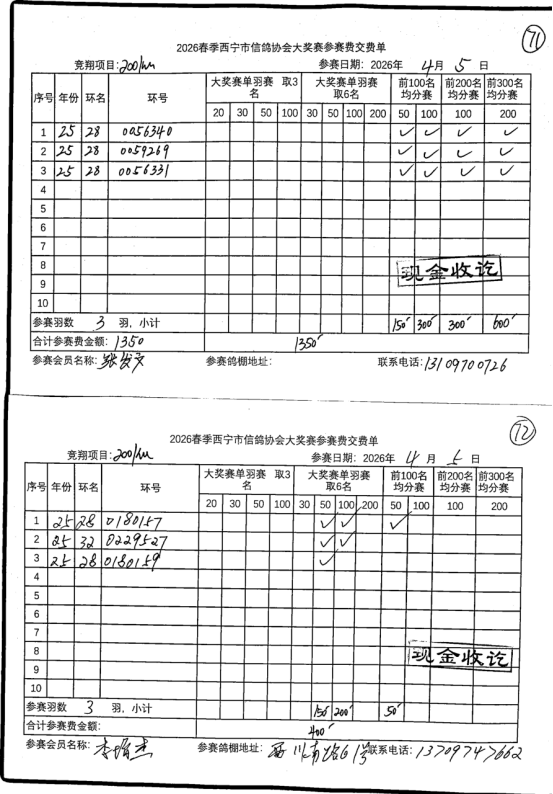 71
2026春季西宁市信鸽协会大奖赛参赛费交费单
竞翔项目: 200km 参赛日期: 2026年 4月 5 日
序号 年份 环名 环号 大奖赛单羽赛 取3名 大奖赛单羽赛 取6名 前100名均分赛 前200名均分赛 前300名均分赛
20 30 50 100 30 50 100 200 50 100 100 200
1 25 28 0056340 ✓ ✓ ✓ ✓
2 25 28 0059269 ✓ ✓ ✓ ✓
3 25 28 0056331 ✓ ✓ ✓ ✓
4
5
6
7
8
9
10
现金收讫
参赛羽数 3 羽，小计 150 300 300 600
合计参赛费金额: 1350 1350
参赛会员名称: 张发文 参赛鸽棚地址: 联系电话: 13109700726
72
2026春季西宁市信鸽协会大奖赛参赛费交费单
竞翔项目: 200km 参赛日期: 2026年 4 月 5 日
序号 年份 环名 环号 大奖赛单羽赛 取3名 大奖赛单羽赛 取6名 前100名均分赛 前200名均分赛 前300名均分赛
20 30 50 100 30 50 100 200 50 100 100 200
1 25 28 0180157 ✓ ✓ ✓
2 25 32 0229527 ✓ ✓
3 25 28 0180159 ✓
4
5
6
7
8
9
10
现金收讫
参赛羽数 3 羽，小计 150 200 50
合计参赛费金额: 400
参赛会员名称: 李 参赛鸽棚地址: 川南路61号 联系电话: 13709747662